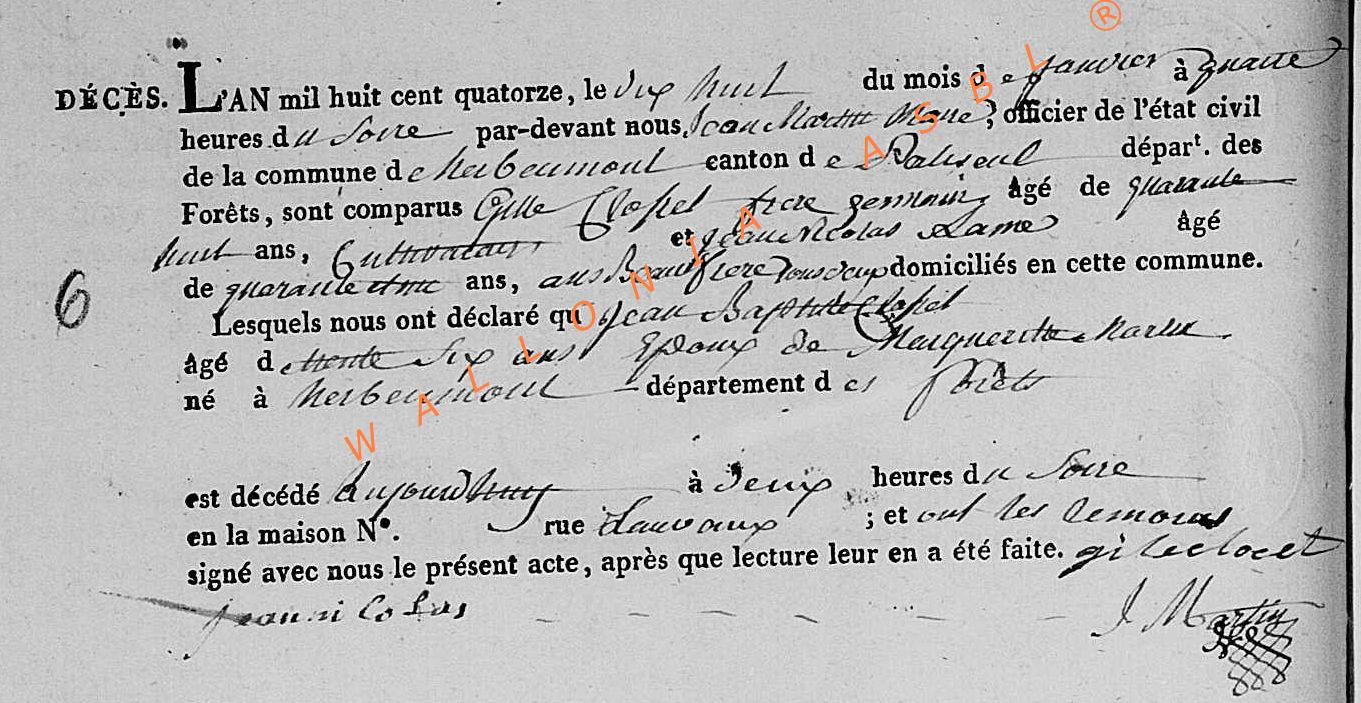 DÉCÈS. L'AN mil huit cent quatorze, le dix huit du mois de janvier à quatre
heures du Soire par-devant nous Jean Martin Maire, officier de l'état civil
de la commune de herbeumont canton de Paliseul départ. des
Forêts, sont comparus Gille Closset frere germain, âgé de quarante
huit ans, Cultivateur, et jean Nicolas Lame âgé
de quarante et un ans, aus Beaufrere tous deux domiciliés en cette commune.
Lesquels nous ont déclaré qu jean Baptiste Closset
âgé de trente Six ans Epoux de Marguerite Martin
né à herbeumont département des forêts
est décédé aujourdhuy à deux heures du Soire
en la maison N°. rue Lauvaux ; et ont les temoins
signé avec nous le présent acte, après que lecture leur en a été faite. gileclocet
jeannicolas J Martin
6
WALLONIA ASBL ®